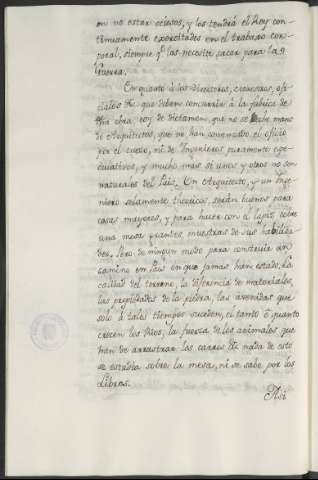 en no estar ociosos, y los tendrá el Rey con-
tinuamente exercitados en el trabajo cor-
poral, siempre q.e los necesite sacar para la
Guerra.
En quanto á los Directores, ofi-
ciales &c. que deben concurrir á la fabrica de
dha obra, soy de dictamen, que no se heche mano
de Arquitectos, que no han comenzado el oficio
por el cincel, ni de Ingenieros puramente espe-
culativos, y mucho mas si unos y otros no son
naturales del Pais. Un Arquitecto, y un Inge-
niero solamente theoricos, serán buenos para
casas mayores, y para hacer con el lapiz sobre
una mesa grandes muestras de sus habilida-
des, Pero de ningun modo para construir un
camino en Pais en que jamas han estado. La
calidad del terreno, la diferencia de materiales,
las propiedades de la piedra, las avenidas que
solo á tales tiempos suceden, el tanto ó quanto
crecen los Rios, la fuerza de los animales que
han de arrastrar los carros &c. nada de esto
se estudia sobre la mesa, ni se sabe por los
Libros.
Asi